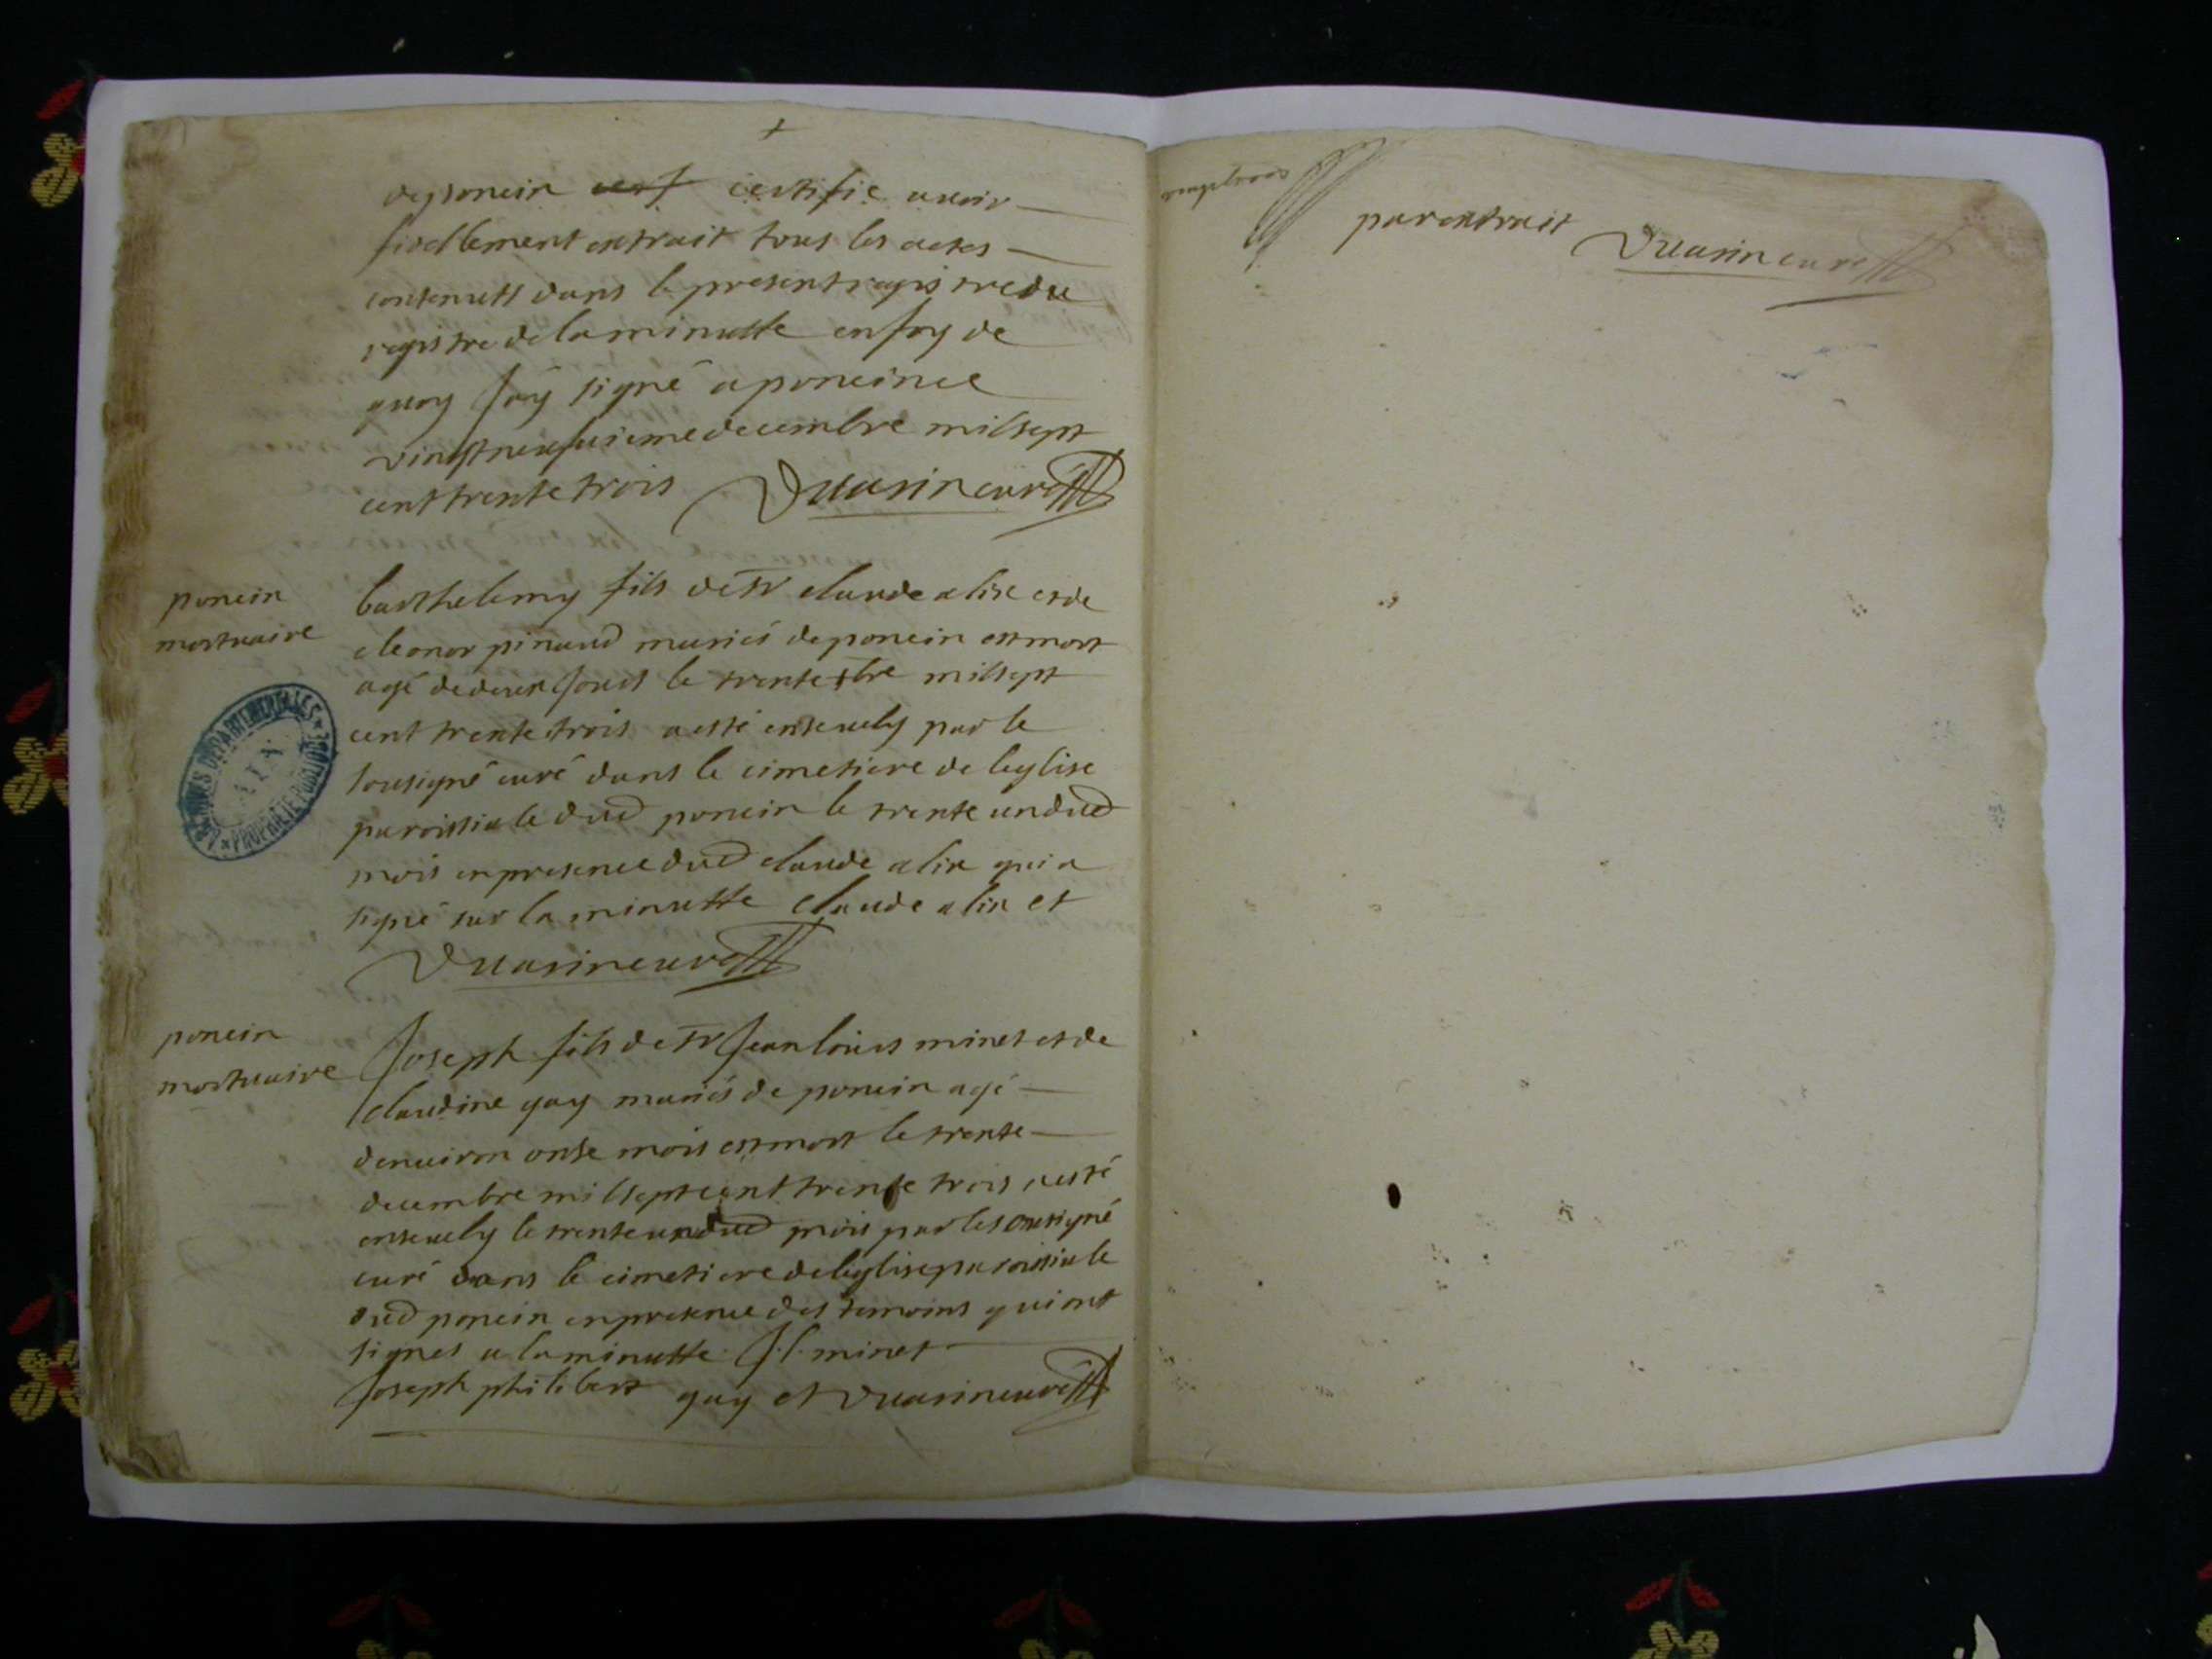 de poncin certifie avoir
fidellement extrait tous les actes
contenutt dans le present registre du
registre de la minutte en foy de
quoy jay signé a poncin ce
vingt neufuieme decembre mil sept
cent trente trois Vuarin curé
poncin
mortuaire
barthelemy fils de Sr claude alix et de
eleonor pinaud mariés de poncin est mort
agé de deux jours le trente xbre mil sept
cent trente trois a esté ensevely par le
sousigné curé dans le cimetiere de leglise
paroissiale dud poncin le trente un dud
mois en presence dud claude alix qui a
signé sur la minutte claude alix et
Vuarin curé
poncin
mortuaire
Joseph fils de Sr Jean louis minet et de
claudine gay mariés de poncin agé
denviron onse mois est mort le trente
decembre mil sept cent trente trois a esté
ensevely le trente un dud mois par le sousigné
curé dans le cimetiere de leglise paroissiale
dud poncin en presence des temoins qui ont
signés a la minutte J. l. minet
Joseph philibert gay et Vuarin curé
par extrait Vuarin curé
ARCHIVES DÉPARTEMENTALES
AIN
PROPRIÉTÉ PUBLIQUE